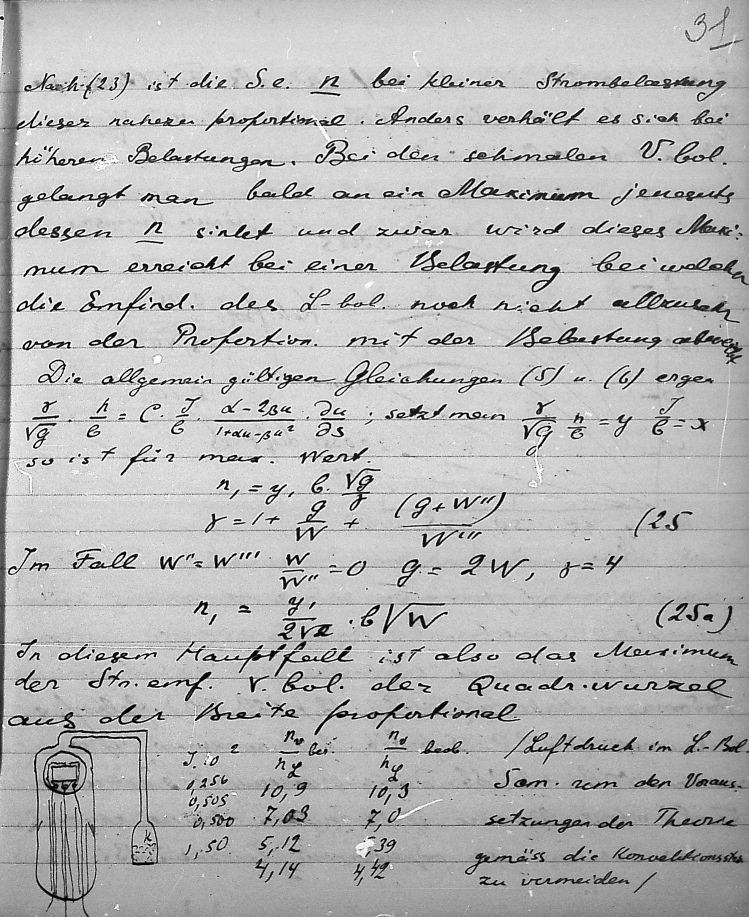 31
Nach (23) ist die S.e. n bei kleiner Strombelastung
dieser nahezu proportional. Anders verhält es sich bei
höheren Belastungen. Bei den schmalen V. bol.
gelangt man bald an ein Maximum jenseits
dessen n sinkt und zwar wird dieses Maxi-
mum erreicht bei einer Belastung bei welcher
die Emfind. des L-bol. noch nicht allzusehr
von der Proportion. mit der Belastung abweicht
Die allgemein gültigen Gleichungen (5) u. (6) ergen
γ/√g · n/b = C · J/b · (α-2βu)/(1+αu-βu²) · ∂u/∂s ; setzt man γ/√g n/b = y J/b = x
so ist für max. Wert.
n₁ = y₁ b · √g/γ
γ = 1 + g/W + (g + W'')/W''' (25
Im Fall W'' = W''' W/W'' = 0 g = 2W, γ = 4
n₁ = y₁/2√2 · b√W (25a)
In diesem Hauptfall ist also das Maximum
der Str. emf. V. bol. der Quadr. wurzel
aus der Breite proportional
J. 10² nᵥ/n_L ber. nᵥ/n_L beob. /Luftdruck im L.-Bol.
0,256 10,9 10,3
0,505 7,03 7,0
0,500 5,12 5,39
1,50 4,14 4,42
5cm. um den Voraus-
setzungen der Theorie
gemäss die
zu vermeiden/
K